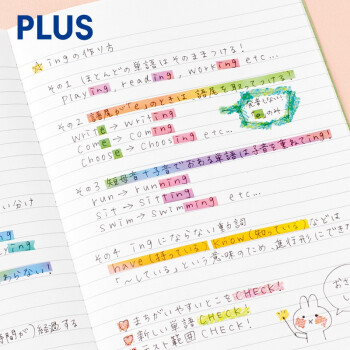 PLUS
ingの作り方
その1 ほとんどの単語はそのままつける!
playing, reading, working etc...
その2 語尾が「e」のときは、語尾を取ってつける!
write → writing
come → coming
choose → choosing etc...
発音しない
eのみ
その3 短母音+子音でおわる単語は子音を重ねてing!
run → running
sit → sitting
swim → swimming etc...
その4 ingにならない動詞
have(持っている) know(知っている)などは
「〜している」という意味のため、進行形にでき
まちがいやすいとこをCHECK!
新しい単語CHECK!
テスト範囲CHECK!
い分け
ing
わらない!
時間が)経過する